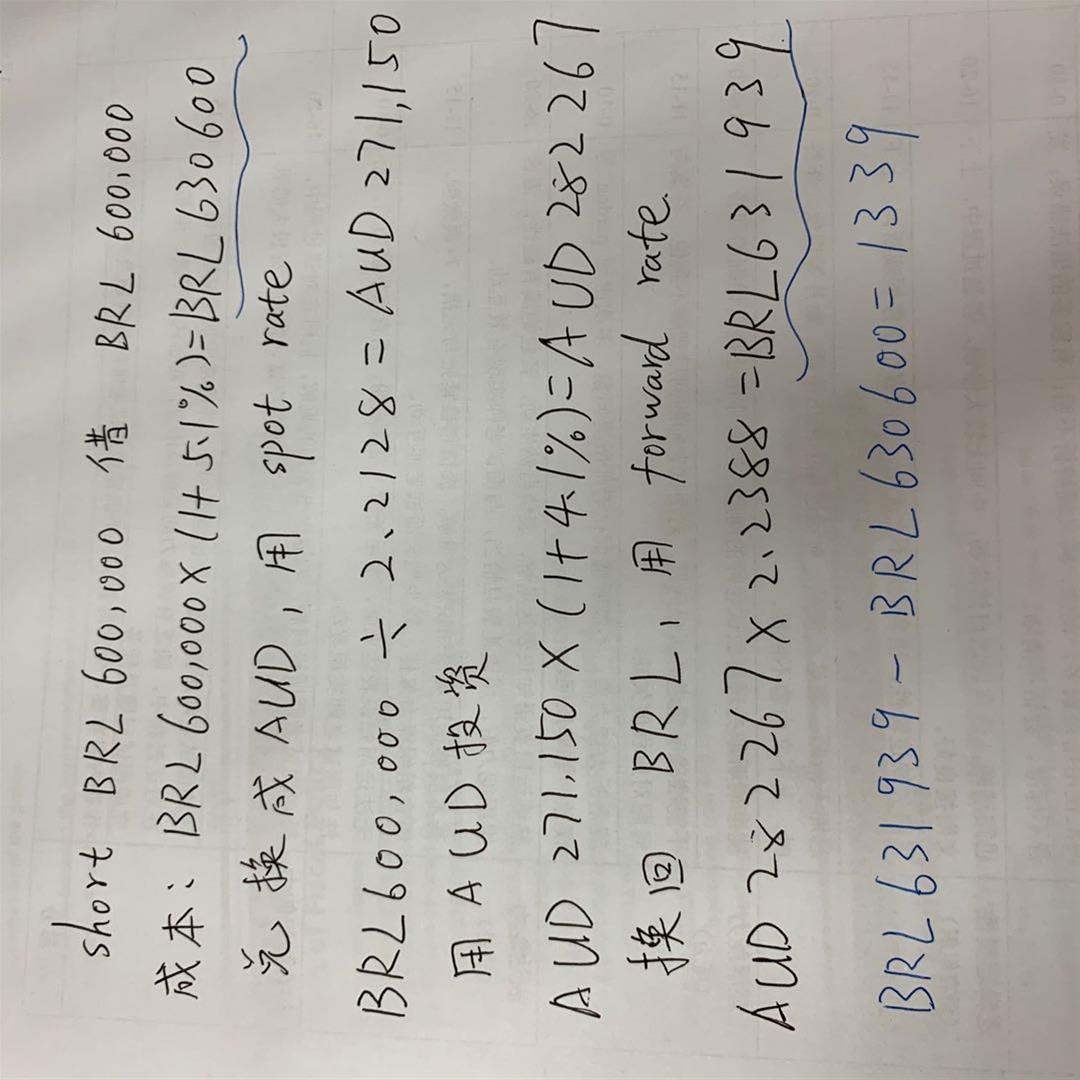 short BRL 600,000 借 BRL 600,000
成本: BRL600,000×(1+5.1%)=BRL630600
兑换成AUD, 用 spot rate
BRL600,000÷2.2128=AUD271,150
用AUD投资
AUD 271,150×(1+4.1%)=AUD282267
换回 BRL, 用 forward rate.
AUD 282267×2.2388=BRL631939
BRL631939-BRL630600=1339